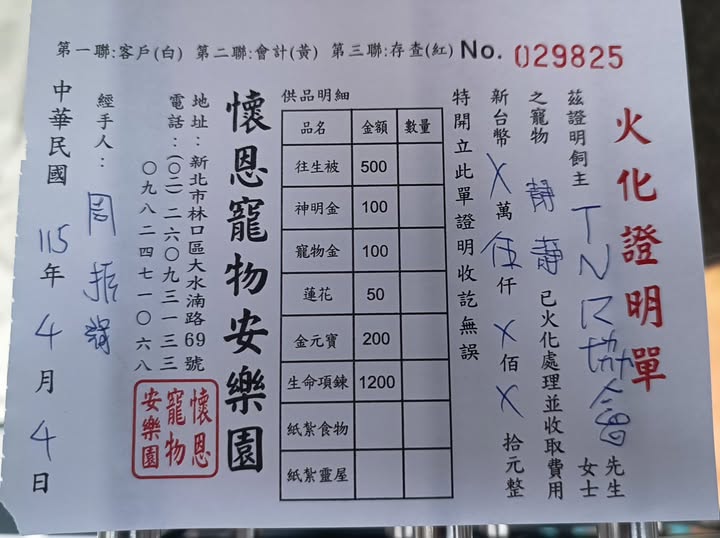 第一聯:客戶(白) 第二聯:會計(黃) 第三聯:存查(紅) No. 029825
火化證明單
茲證明飼主TNR協會 先生 女士
之寵物 靜靜 已火化處理並收取費用
新台幣 X 萬 伍 仟 X 佰 X 拾元整
特開立此單證明收訖無誤
供品明細
品名 金額 數量
往生被 500
神明金 100
寵物金 100
蓮花 50
金元寶 200
生命項鍊 1200
紙紮食物
紙紮靈屋
懷恩寵物安樂園
地址:新北市林口區大水湳路69號
電話:(〇二)二六〇九三一三三
〇九八二四七一〇六八
懷恩
寵物
安樂園
經手人: 周振
中華民國 115 年 4 月 4 日